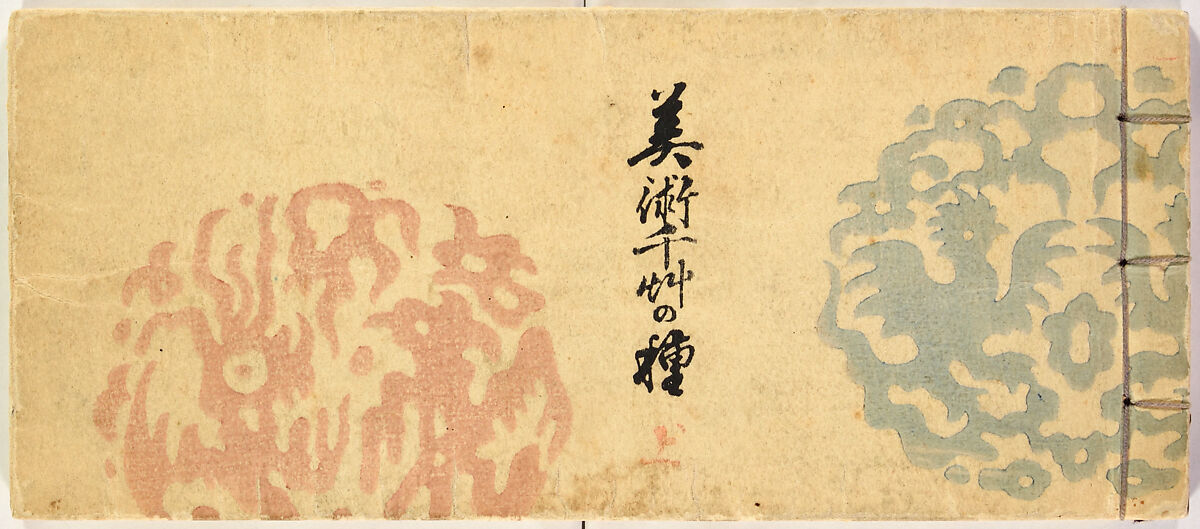 美術千艸の種
上